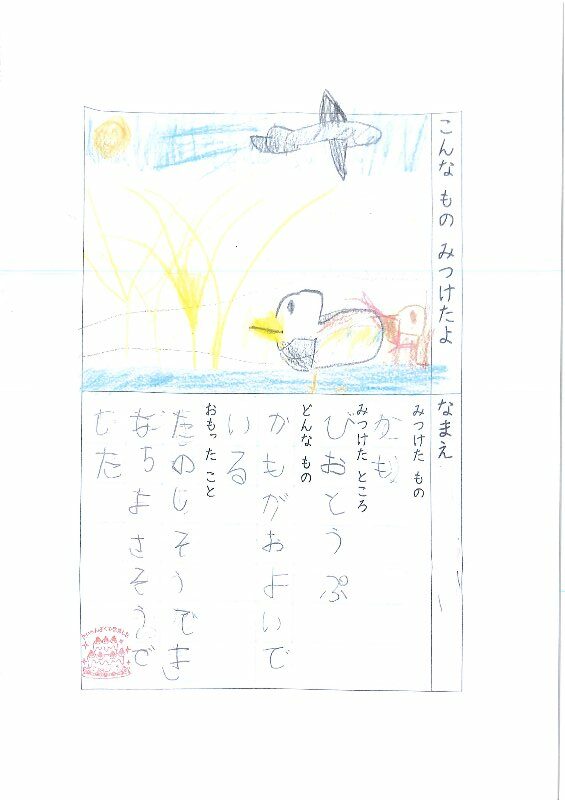 こんな もの みつけたよ
なまえ
みつけた もの
かも
みつけた ところ
びおとうぷ
どんな もの
かもがおよいで
いる
おもった こと
たのしそうでき
もちよさそうで
した